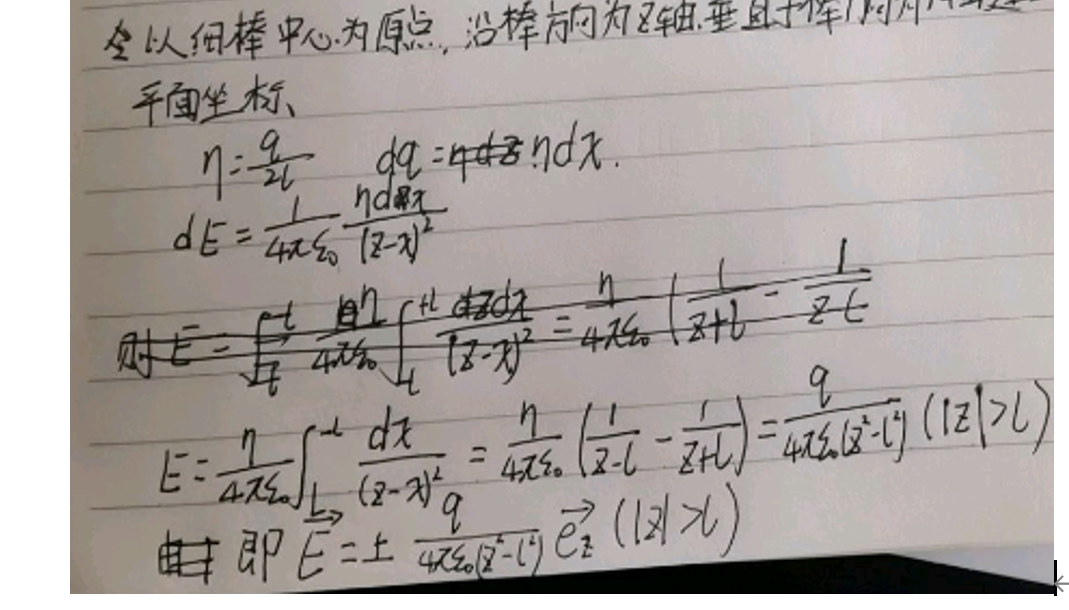 令以细棒中心为原点,沿棒方向为z轴.垂直于棒
平面坐标、
η=q/2l dq=ηdx.
dE=1/4πε₀ ηdx/(z-x)²
则E=∫ η/4πε₀ ∫ dx/(z-x)² = η/4πε₀ (1/z+l - 1/z-l
E=η/4πε₀ ∫ dx/(z-x)² = η/4πε₀ (1/z-l - 1/z+l) = q/4πε₀(z²-l²) (|z|>l)
即 E⃗=± q/4πε₀(z²-l²) e⃗z (|z|>l)